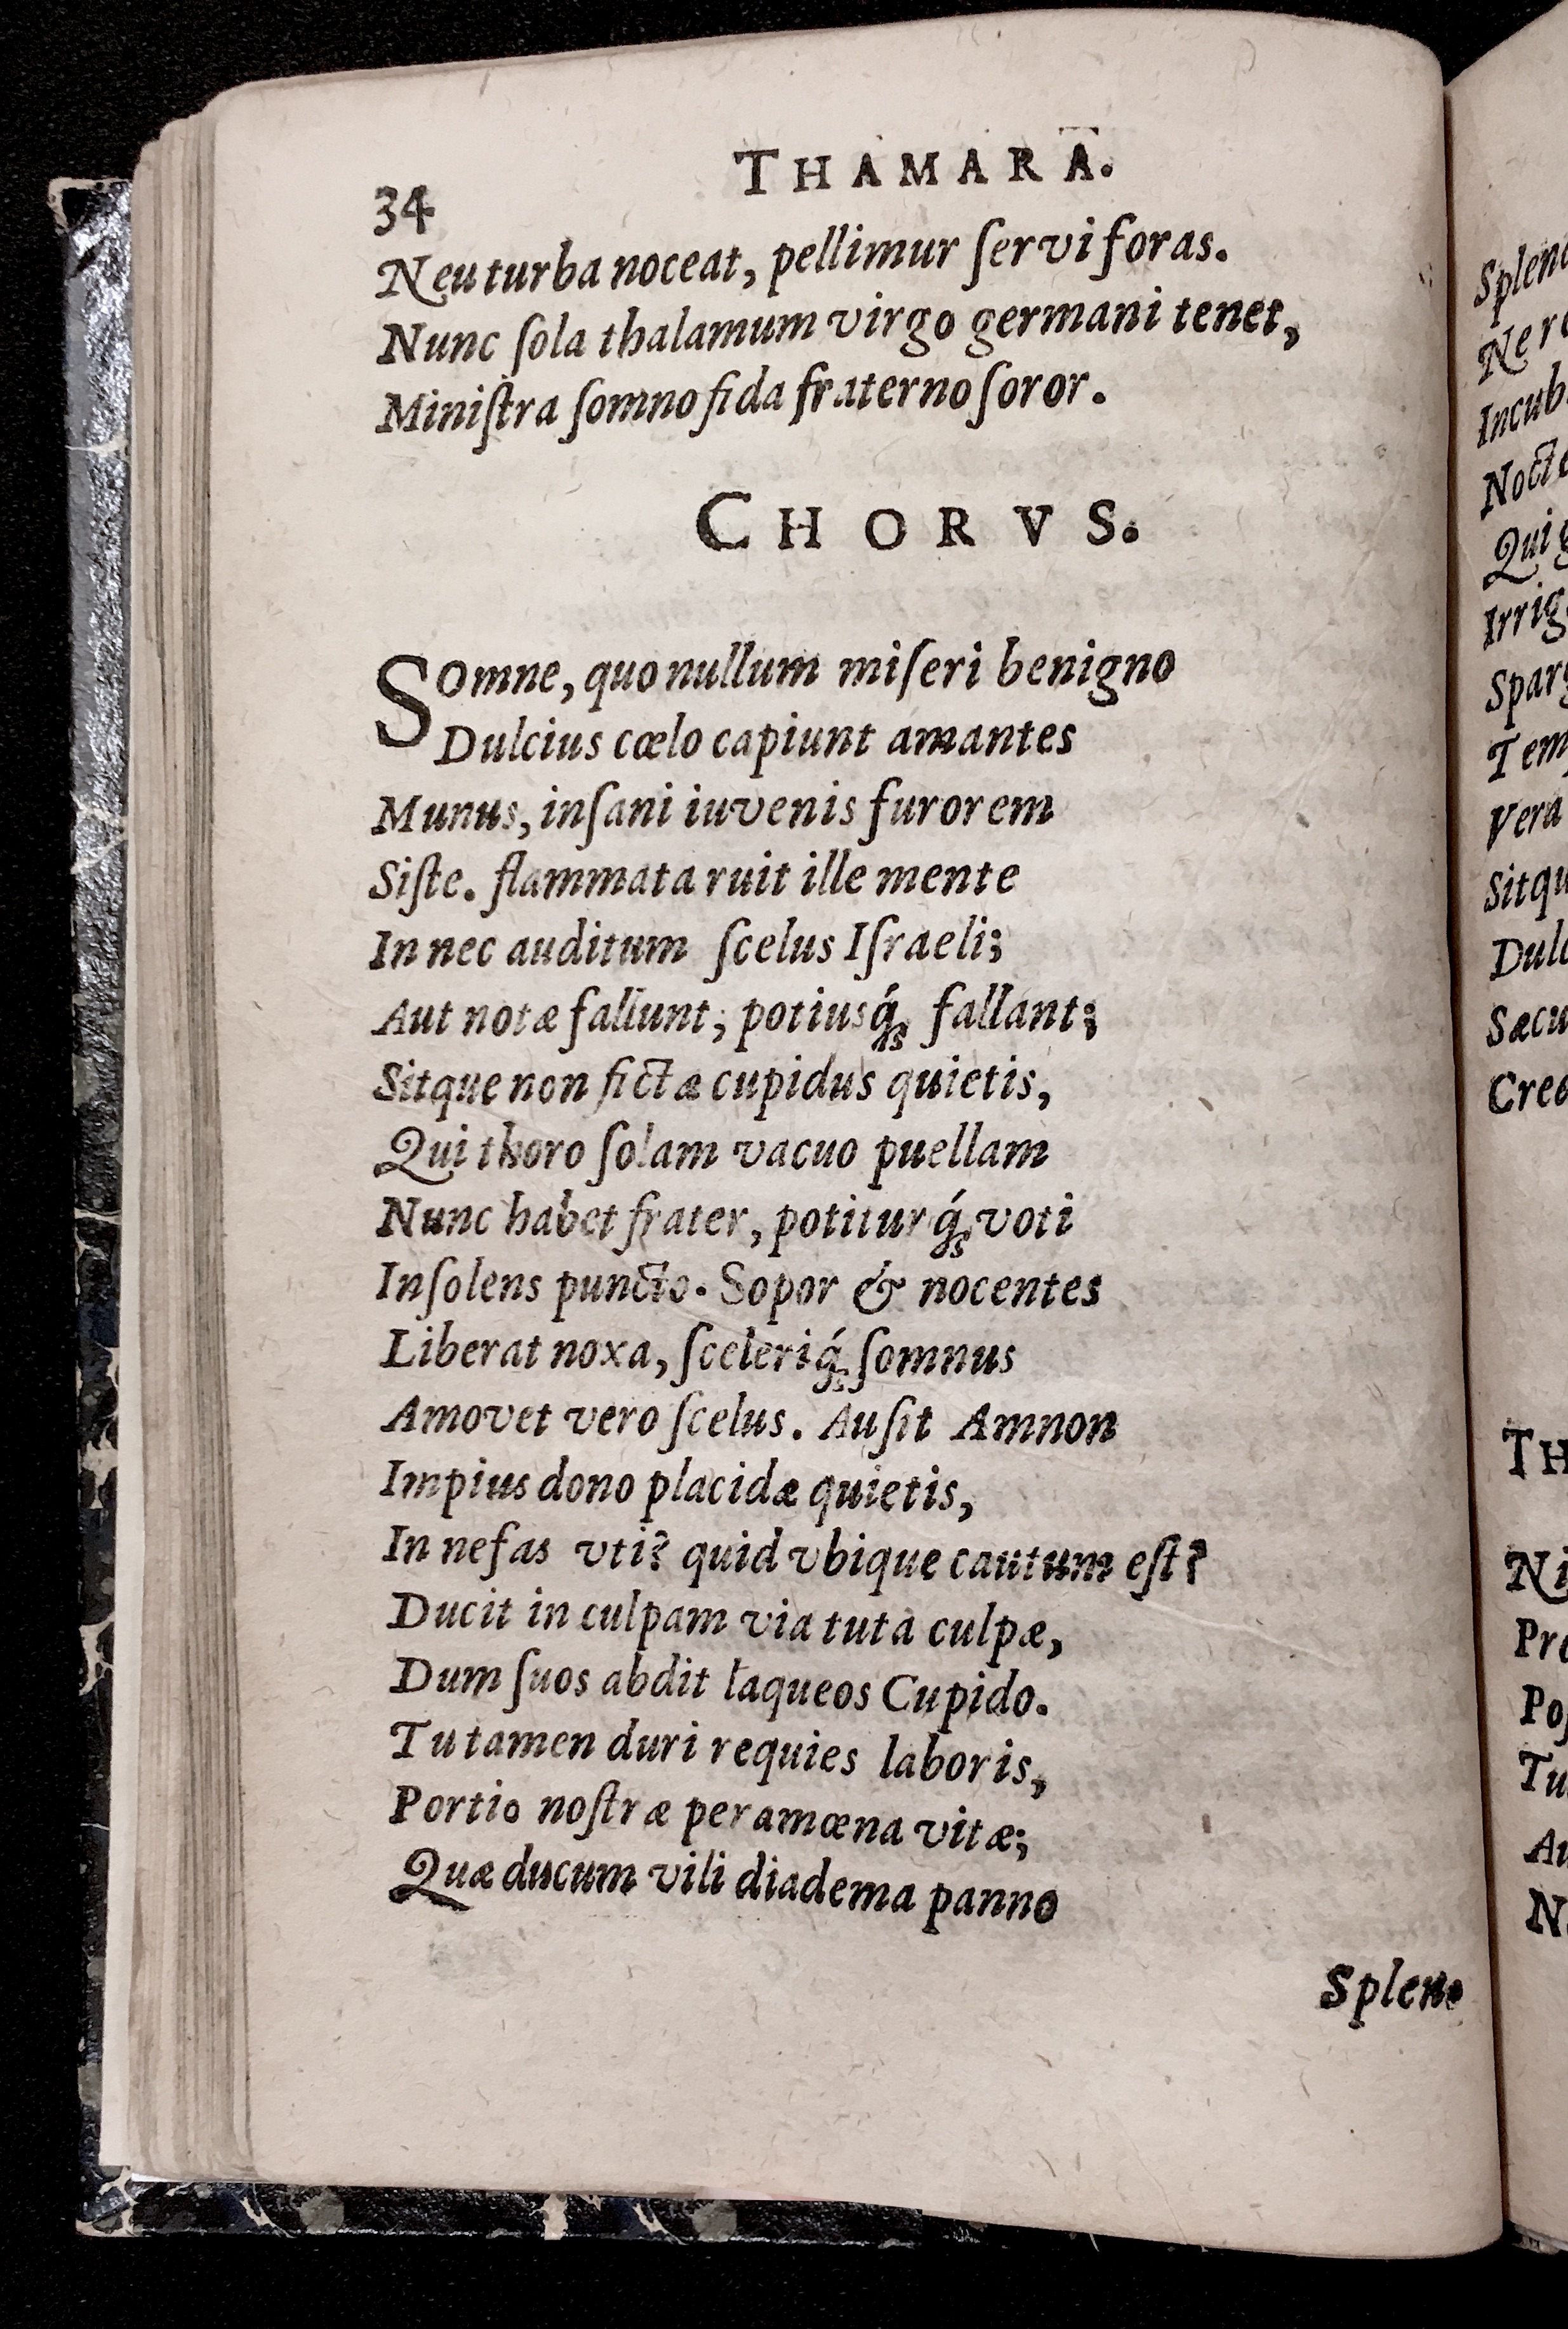 THAMARA.
34
Neu turba noceat, pellimur ſervi foras.
Nunc ſola thalamum virgo germani tenet,
Miniſtra ſomno fida fraterno ſoror.
CHORVS.
SOmne, quo nullum miſeri benigno
Dulcius cœlo capiunt amantes
Munus, inſani iuvenis furorem
Siſte. flammata ruit ille mente
In nec auditum ſcelus Iſraeli;
Aut notæ fallunt; potiusq́ꝫ fallant;
Sitque non fictæ cupidus quietis,
Qui thoro ſolam vacuo puellam
Nunc habet frater, potiturq́ꝫ voti
Inſolens puncto. Sopor & nocentes
Liberat noxa, ſceleriq́ꝫ ſomnus
Amovet vero ſcelus. Auſit Amnon
Impius dono placidæ quietis,
In nefas vti? quid vbique cautum eſt?
Ducit in culpam via tuta culpæ,
Dum ſuos abdit laqueos Cupido.
Tu tamen duri requies laboris,
Portio noſtræ peramœna vitæ;
Quæ ducum vili diadema panno
Splen-
Ner
Incub
Nocte
Qui g
Irrig
Sparg
Tem
Vera
Sitqu
Dulc
Sæcu
Cred
TH
Ni
Pro
Poſ
Tu
Au